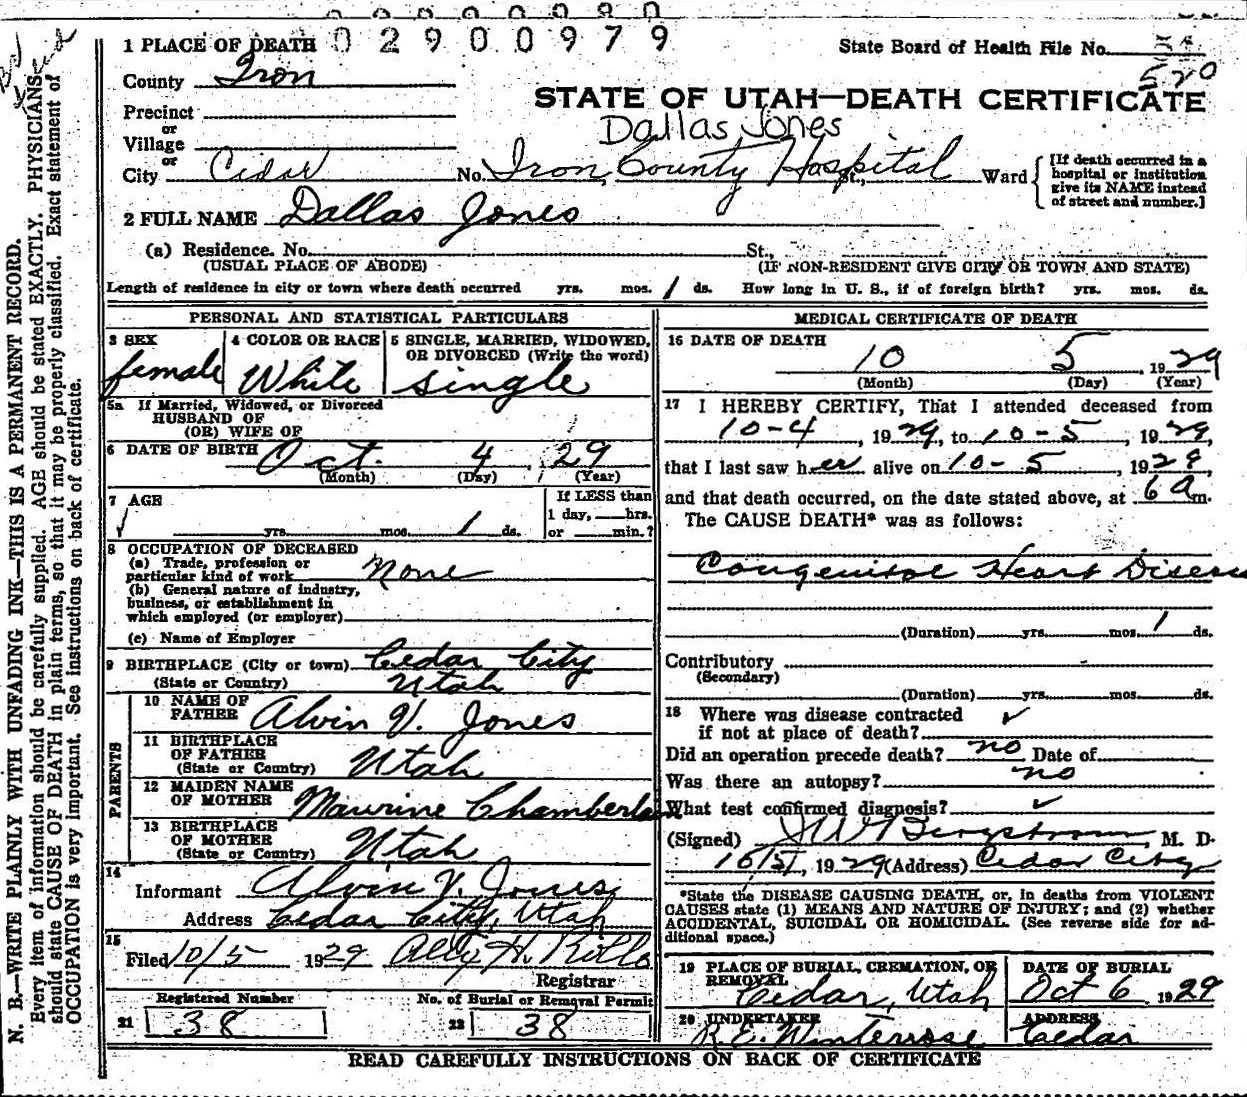 02900979
1 PLACE OF DEATH
State Board of Health File No.
520
County Iron
STATE OF UTAH—DEATH CERTIFICATE
Precinct
or
Dallas Jones
Village
or
City Cedar No. Iron County Hospital St., Ward
[If death occurred in a hospital or institution give its NAME instead of street and number.]
2 FULL NAME Dallas Jones
(a) Residence. No. St.,
(USUAL PLACE OF ABODE) (IF NON-RESIDENT GIVE CITY OR TOWN AND STATE)
Length of residence in city or town where death occurred yrs. mos. 1 ds. How long in U. S., if of foreign birth? yrs. mos. ds.
PERSONAL AND STATISTICAL PARTICULARS
3 SEX
female
4 COLOR OR RACE
White
5 SINGLE, MARRIED, WIDOWED, OR DIVORCED (Write the word)
single
5a If Married, Widowed, or Divorced
HUSBAND OF
(OR) WIFE OF
6 DATE OF BIRTH Oct. 4, 29
(Month) (Day) (Year)
7 AGE
yrs. mos. 1 ds.
If LESS than
1 day, hrs.
or min.?
8 OCCUPATION OF DECEASED
(a) Trade, profession or
particular kind of work None
(b) General nature of industry,
business, or establishment in
which employed (or employer)
(c) Name of Employer
9 BIRTHPLACE (City or town) Cedar City
(State or Country) Utah
PARENTS
10 NAME OF
FATHER Alvin V. Jones
11 BIRTHPLACE
OF FATHER
(State or Country) Utah
12 MAIDEN NAME
OF MOTHER Maurine Chamberlain
13 BIRTHPLACE
OF MOTHER
(State or Country) Utah
14
Informant Alvin V. Jones
Address Cedar City, Utah
15
Filed 10/5 1929
Registrar
Registered Number
21 38
No. of Burial or Removal Permit
22 38
MEDICAL CERTIFICATE OF DEATH
16 DATE OF DEATH
10 5, 1929
(Month) (Day) (Year)
17 I HEREBY CERTIFY, That I attended deceased from
10-4, 1929, to 10-5, 1929,
that I last saw her alive on 10-5, 1929,
and that death occurred, on the date stated above, at 6 a m.
The CAUSE DEATH* was as follows:
Congenital Heart Disease
(Duration) yrs. mos. 1 ds.
Contributory
(Secondary)
(Duration) yrs. mos. ds.
18 Where was disease contracted
if not at place of death?
Did an operation precede death? no Date of
Was there an autopsy? no
What test confirmed diagnosis?
(Signed) Bergstrom, M. D.
10/5, 1929 (Address) Cedar City
*State the DISEASE CAUSING DEATH, or, in deaths from VIOLENT
CAUSES state (1) MEANS AND NATURE OF INJURY; and (2) whether
ACCIDENTAL, SUICIDAL OR HOMICIDAL. (See reverse side for ad-
ditional space.)
19 PLACE OF BURIAL, CREMATION, OR
REMOVAL
Cedar, Utah
DATE OF BURIAL
Oct 6 1929
20 UNDERTAKER
R. E. Winterrose
ADDRESS
Cedar
READ CAREFULLY INSTRUCTIONS ON BACK OF CERTIFICATE
N. B.—WRITE PLAINLY WITH UNFADING INK—THIS IS A PERMANENT RECORD.
Every item of information should be carefully supplied. AGE should be stated EXACTLY. PHYSICIANS
should state CAUSE OF DEATH in plain terms, so that it may be properly classified. Exact statement of
OCCUPATION is very important. See instructions on back of certificate.